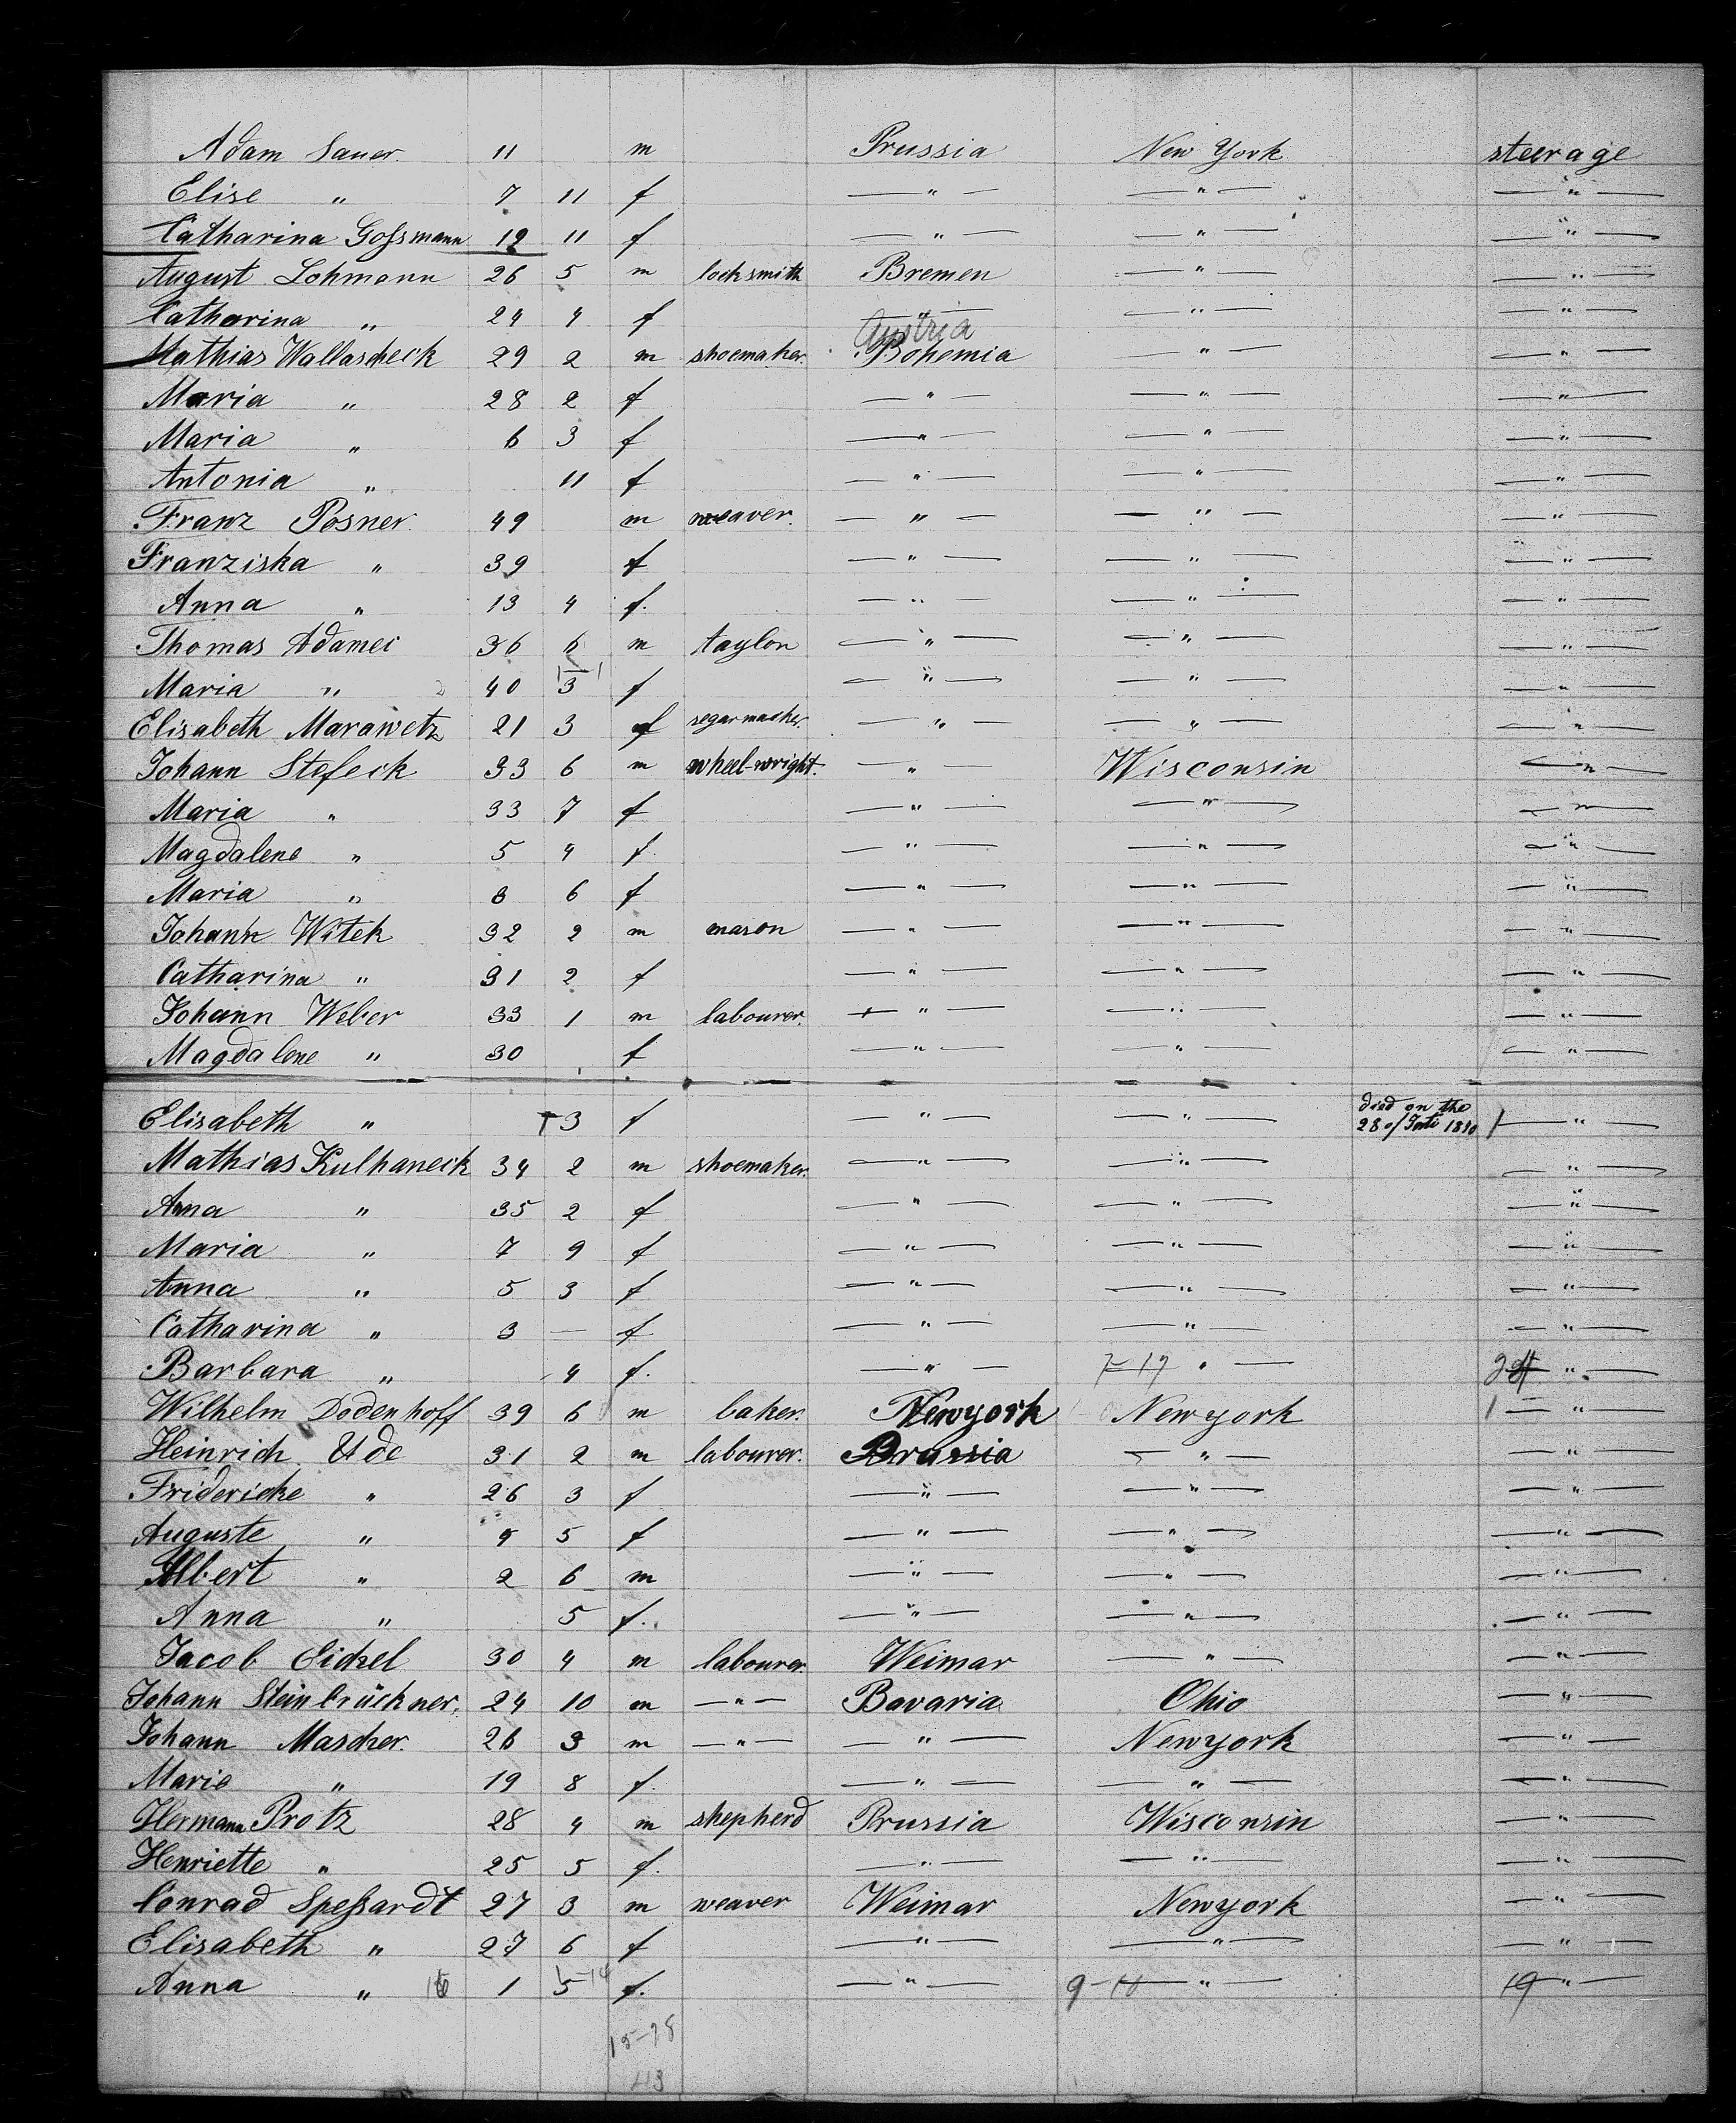 Adam Sauer. 11 m Prussia New York steerage
Elise " 7 11 f — " — — " — — " —
Catharina Goſsmann 19 11 f — " — — " — — " —
August Lohmann 26 5 m locksmith Bremen — " — — " —
Catharina " 24 4 f — " — — " — — " —
Austria
Mathias Wallascheck 29 2 m shoemaker. Bohemia — " — — " —
Maria " 28 2 f — " — — " — — " —
Maria " 6 3 f — " — — " — — " —
Antonia " 11 f — " — — " — — " —
Franz Posner. 49 m weaver. — " — — " — — " —
Franziska " 39 f — " — — " — — " —
Anna " 13 4 f. — " — — " — — " —
Thomas Adamec 36 6 m taylor — " — — " — — " —
Maria " 40 3 f — " — — " — — " —
Elisabeth Marawetz 21 3 f segarmacher. — " — — " — — " —
Johann Stefeck 33 6 m wheel-wright. — " — Wisconsin — " —
Maria " 33 7 f — " — — " — — " —
Magdalene " 5 4 f. — " — — " — — " —
Maria " 3 6 f — " — — " — — " —
Johann Witek 32 2 m mason — " — — " — — " —
Catharina " 31 2 f — " — — " — — " —
Johann Weber 33 1 m labourer. — " — — " — — " —
Magdalene " 30 f — " — — " — — " —
Elisabeth " † 3 f — " — — " — died on the 28 of 1 — " —
Mathias Kulhaneck 34 2 m shoemaker. — " — — " — — " —
Anna " 35 2 f — " — — " — — " —
Maria " 7 9 f — " — — " — — " —
Anna " 5 3 f — " — — " — — " —
Catharina " 3 — f — " — — " — — " —
Barbara " 4 f. — " — 7-17 " — " —
Wilhelm Dodenhoff 39 6 m baker. Newyork Newyork 1 — " —
Heinrich Ude 31 2 m labourer. Prussia — " — — " —
Fridericke " 26 3 f — " — — " — — " —
Auguste " 4 5 f — " — — " — — " —
Albert " 2 6 m — " — — " — — " —
Anna " 5 f. — " — — " — — " —
Jacob Eickel 30 4 m labourer. Weimar — " — — " —
Johann Steinbrückner. 24 10 m — " — Bavaria Ohio — " —
Johann Mascher. 26 3 m — " — — " — Newyork — " —
Marie " 19 8 f. — " — — " — — " —
Hermann Protz 28 4 m shepherd Prussia Wisconsin — " —
Henriette " 25 5 f. — " — — " — — " —
Conrad Speſsardt 27 3 m weaver Weimar Newyork — " —
Elisabeth " 27 6 f — " — — " — — " —
Anna " 1 5 f. — " — 9-10 " — 19 " —
15-28